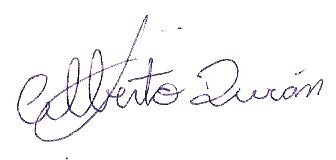 Alberto Durán